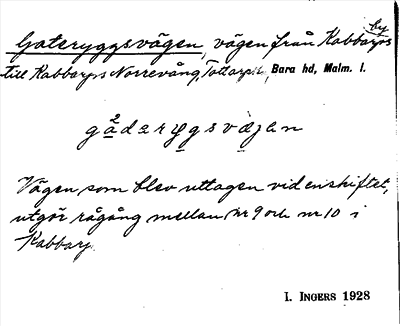 Gateryggsvägen, vägen från Kabbarps by
till Kabbarps Norrevång, Tottarps, Bara hd, Malm. l.
gå²darygsväjan
Vägen, som blev uttagen vid enskiftet,
utgör rågång mellan nr 9 och nr 10 i
Kabbarp.
I. INGERS 1928